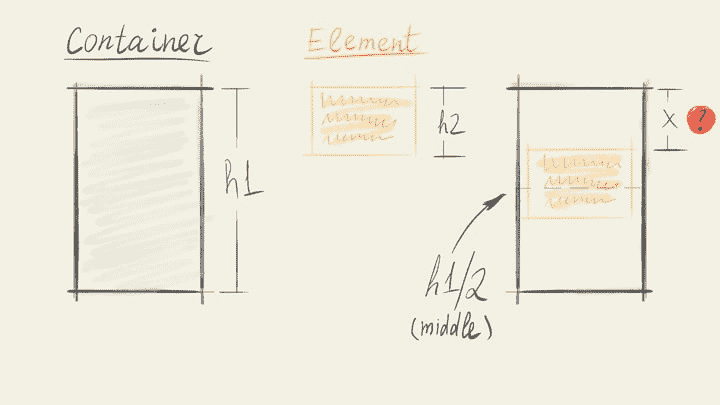 Container
Element
h1
h2
X ?
h1/2
(middle)